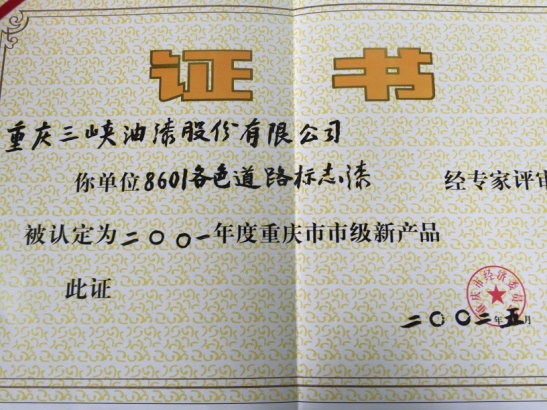 证书
重庆三峡油漆股份有限公司
你单位8601各色道路标志漆 经专家评审
被认定为二〇〇一年度重庆市市级新产品
此证
重庆市经济委员会
二〇〇二年五月